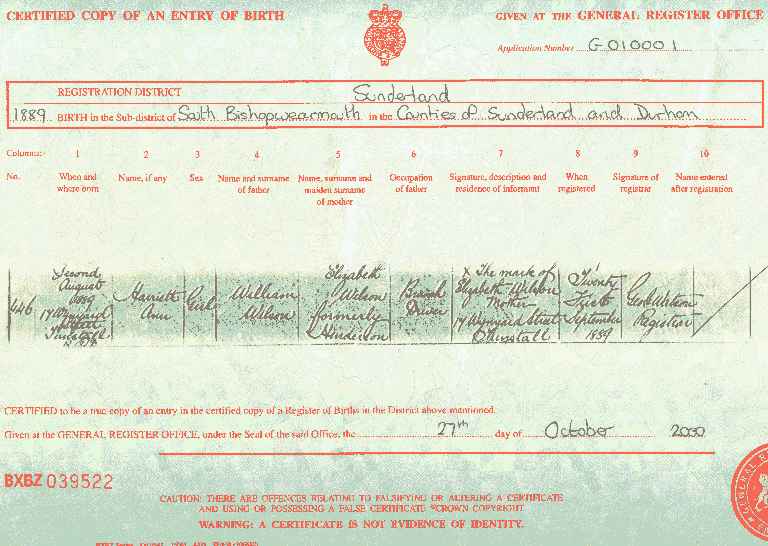 CERTIFIED COPY OF AN ENTRY OF BIRTH
GIVEN AT THE GENERAL REGISTER OFFICE
Application Number G010001
REGISTRATION DISTRICT Sunderland
1889 BIRTH in the Sub-district of South Bishopwearmouth in the Counties of Sunderland and Durham
Columns:- 1 2 3 4 5 6 7 8 9 10
No. When and where born Name, if any Sex Name and surname of father Name, surname and maiden surname of mother Occupation of father Signature, description and residence of informant When registered Signature of registrar Name entered after registration
446
Second
August
1889
17 Wynyard
Street
Tunstall
Harriett
Ann
Girl
William
Wilson
Elizabeth
Wilson
formerly
Henderson
Driver
X The mark of
Elizabeth Wilson
Mother
17 Wynyard Street
Tunstall
Twenty
First
September
1889
Registrar
CERTIFIED to be a true copy of an entry in the certified copy of a Register of Births in the District above mentioned.
Given at the GENERAL REGISTER OFFICE, under the Seal of the said Office, the 27th day of October 2000
BXBZ 039522
CAUTION: THERE ARE OFFENCES RELATING TO FALSIFYING OR ALTERING A CERTIFICATE
AND USING OR POSSESSING A FALSE CERTIFICATE ©CROWN COPYRIGHT
WARNING: A CERTIFICATE IS NOT EVIDENCE OF IDENTITY.